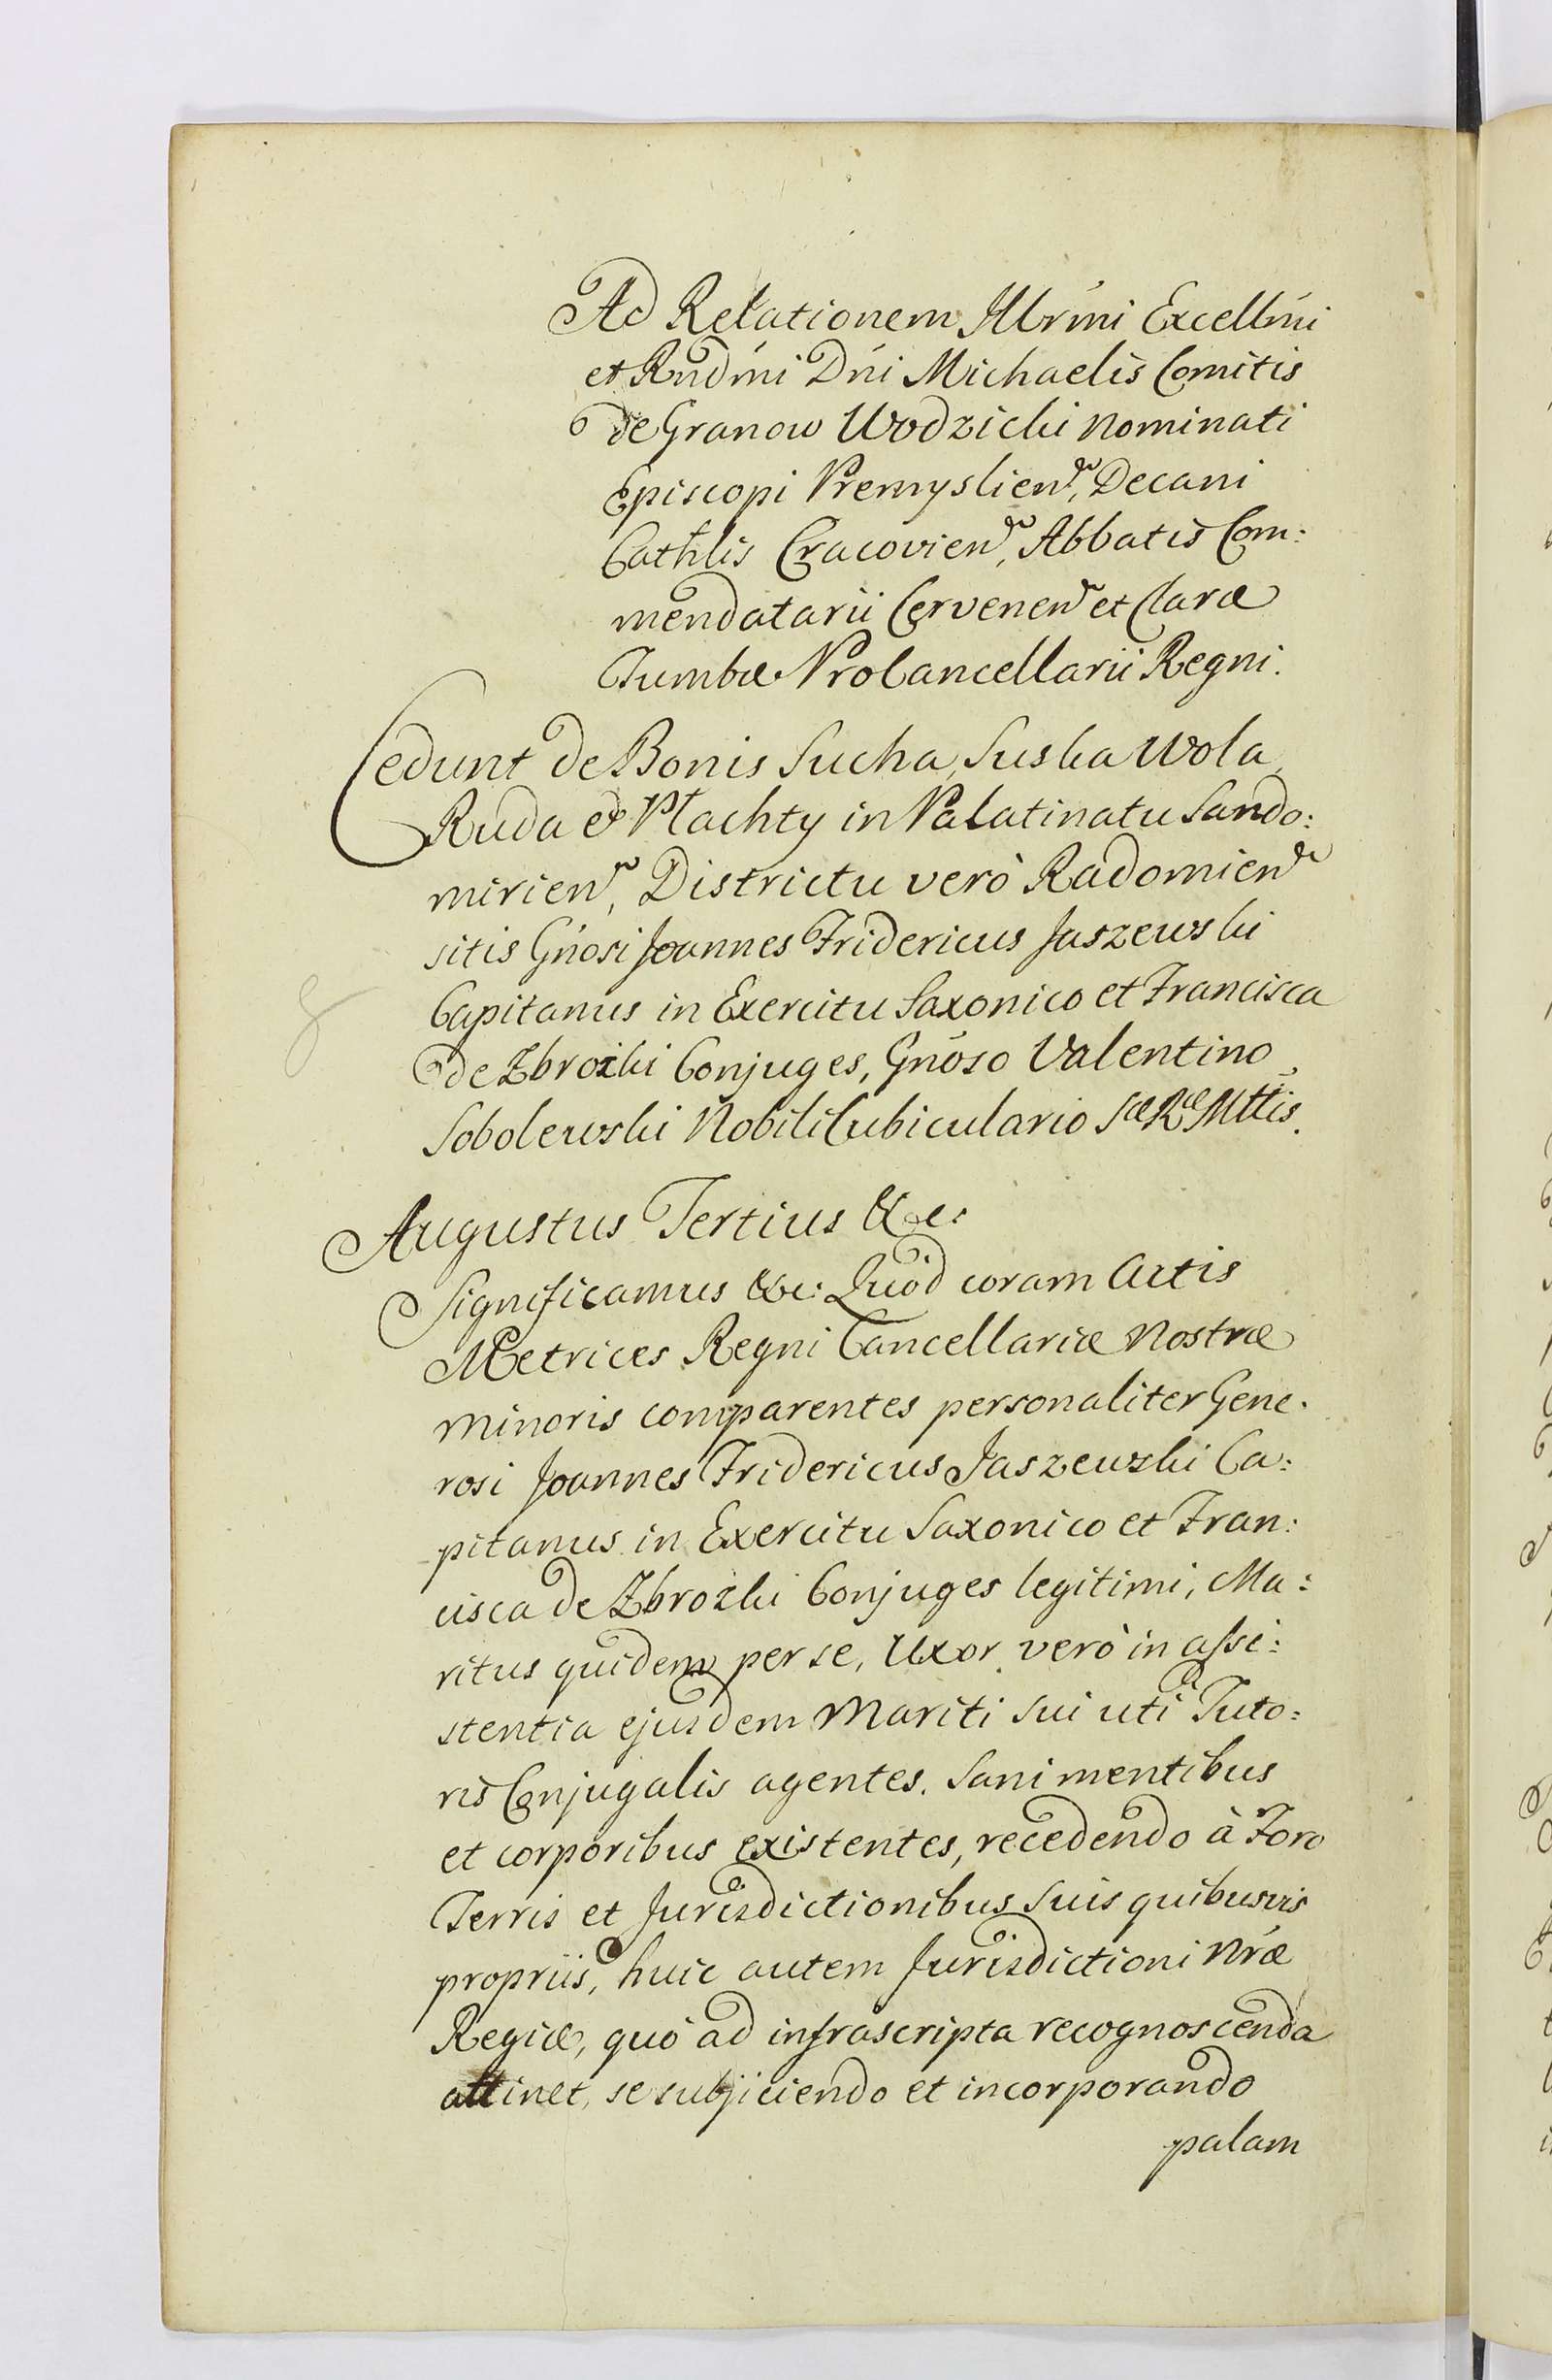 Ad Relationem Illrmi Excellmi
et Rndmi Dni Michaelis Comitis
de Granow Wodzicki Nominati
Episcopi Premyslien, Decani
Cathlis Cracovien, Abbatis Com:
mendatarii Cervenen et Claræ
Tumbæ ProCancellarii Regni.
Cedunt de Bonis Sucha, Suska Wola,
Ruda & Płachty in Palatinatu Sando:
mirien, Districtu verò Radomien
sitis Gnosi Joannes Fridericus Jaszewski
Capitanus in Exercitu Saxonico et Francisca
de Zbrozki Conjuges, Gnoso Valentino
Sobolewski Nobili Cubiculario Sæ Ræ Mttis.
8
Augustus Tertius &c:
Significamus &c: Quod coram Actis
Metrices Regni Cancellariæ Nostræ
Minoris comparentes personaliter Gene:
rosi Joannes Fridericus Jaszewski Ca:
pitanus in Exercitu Saxonico et Fran:
cisca de Zbrozki Conjuges legitimi, Ma:
ritus quidem per se, Uxor verò in assi:
stentia ejusdem Mariti sui uti Tuto:
ris Conjugalis agentes. Sani mentibus
et corporibus existentes, recedendo à Foro
Terris et Jurisdictionibus suis quibusvis
propriis, huic autem Jurisdictioni Nræ
Regiæ, quò ad infrascripta recognoscenda
attinet, se subjiciendo et incorporando
palam